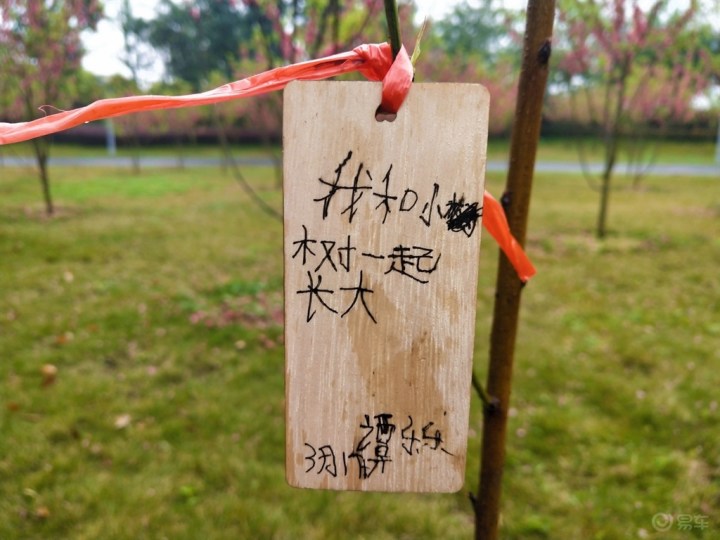 我和小
树一起
长大
谭乐乐
3月1
易车